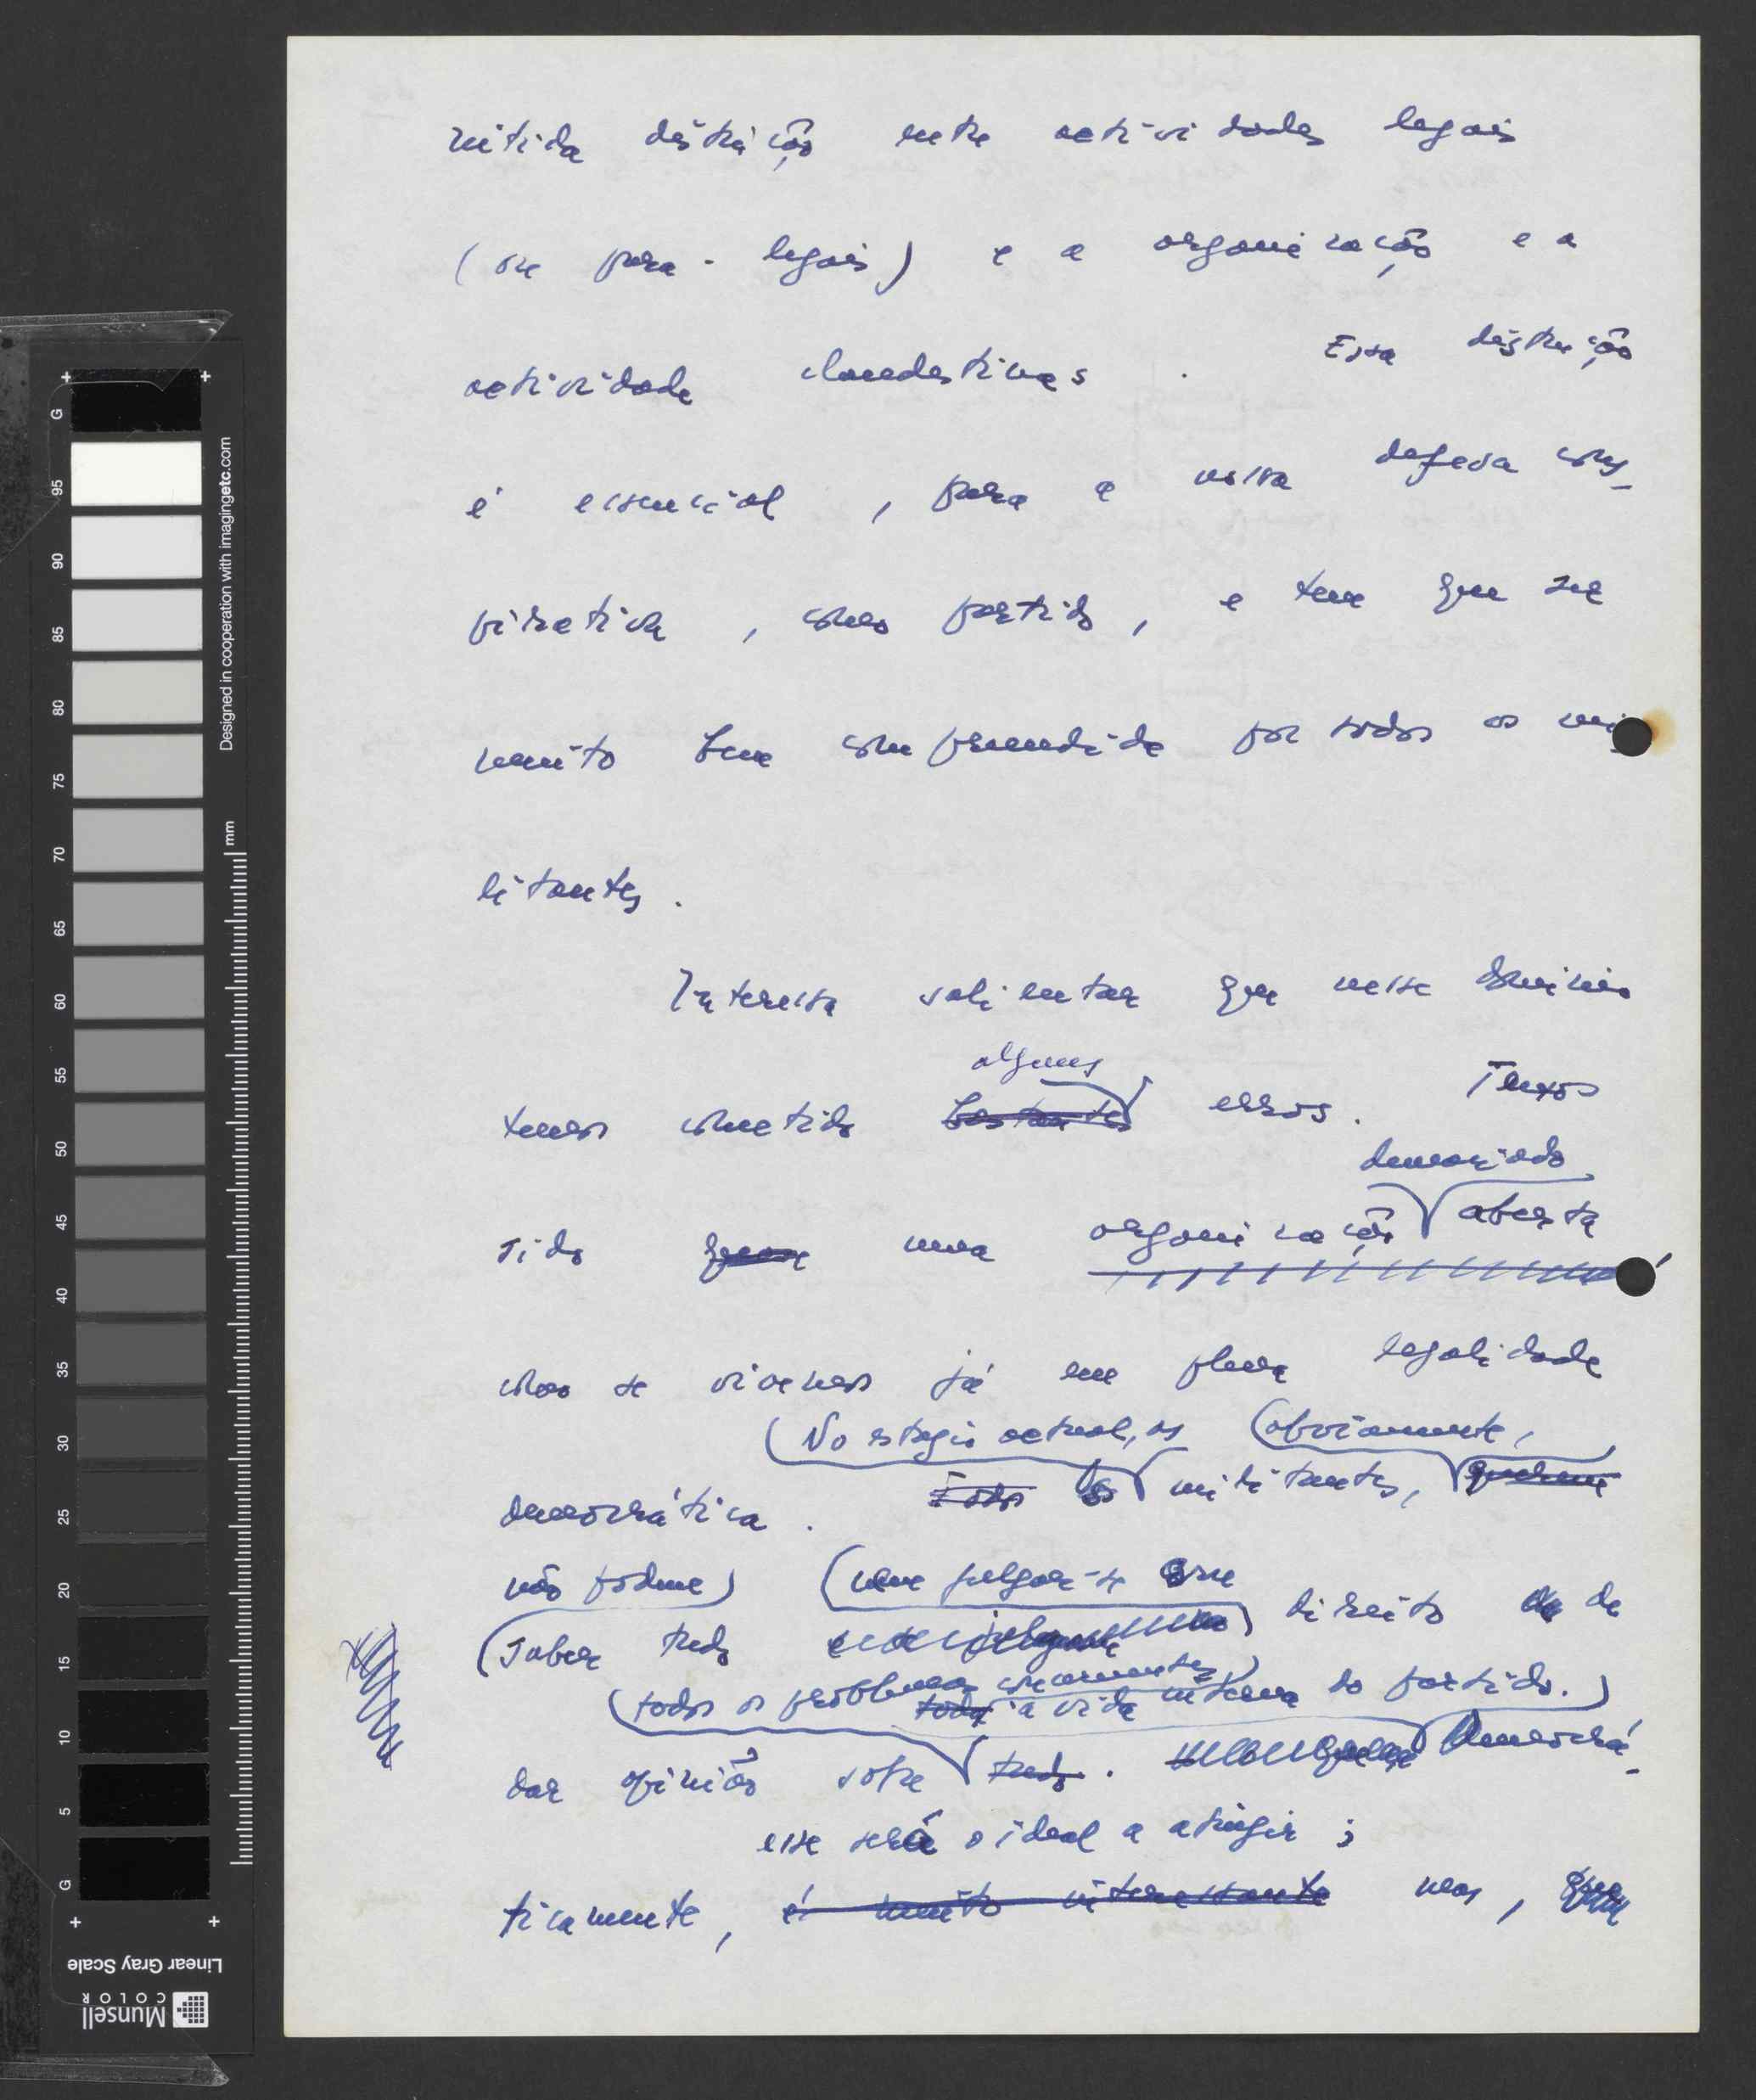 nítida distinção entre actividades legais
(ou para-legais) e a organização e a
actividade clandestinas. Essa distinção
é essencial, para a nossa defesa cons-
pirativa, como partido, e tem que ser
muito bem compreendida por todos os mi-
litantes.
Interessa salientar que nesse domínio
alguns
temos cometido bastantes erros. Temos
demasiado
sido quase uma organização aberta
como se vivemos já em plena legalidade
No estagio actual, os (obviamente,
democrática. Todos os militantes, querem
não podem) (nem julgar-se com
saber tudo direito de
todos os problemas concernentes
toda a vida interna do partido.)
dar opinião sobre tudo. Democrá-
esse será o ideal a atingir;
ticamente, é muito interessante mas,
Designed in cooperation with imagingetc.com
mm
G 95 90 85 80 75 70 65 60 55 50 45 40 35 30 25 20 15 10 5 G
Linear Gray Scale
Munsell
COLOR